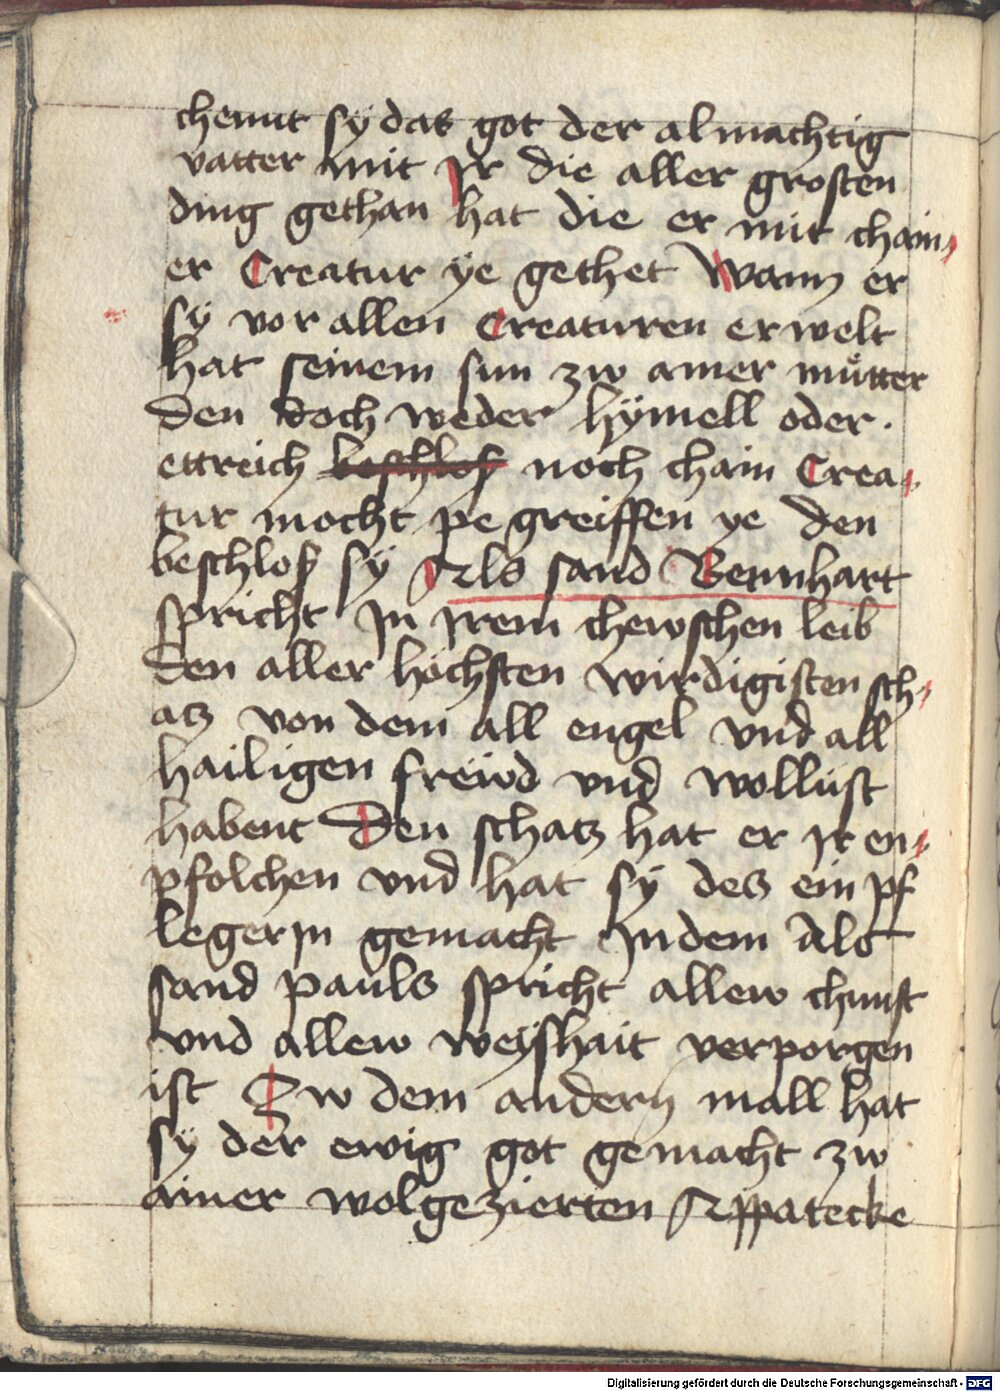 chennt sy das got der almachtig
vatter mit Jr die aller grosten
ding gethan hat die er mit chain⸗
er Creatur ye gethet Wann er
sy vor allen Creaturen erwelt
hat seinem sun zw ainer muͦtter
den doch weder hymell oder
ettreich beschlos noch chain Crea⸗
tur mocht pe greiffen ye den
beschlos sy Als sand Bernnhart
spricht Jn jrem chewschen leib
den aller hochsten wirdigisten sch⸗
atz von dem all engel vnd all
hailigen frewd vnd wollust
habent Den schatz hat er jr en⸗
pfolchen vnd hat sy des ein pf
legerjn gemacht Jn dem Als
sand pauls spricht allew chunst
vnd allew weyshait verporgen
ist Zw dem andern mall hat
sy der ewig got gemacht zw
ainer wolgezierten Appatecke
Digitalisierung gefördert durch die Deutsche Forschungsgemeinschaft - DFG